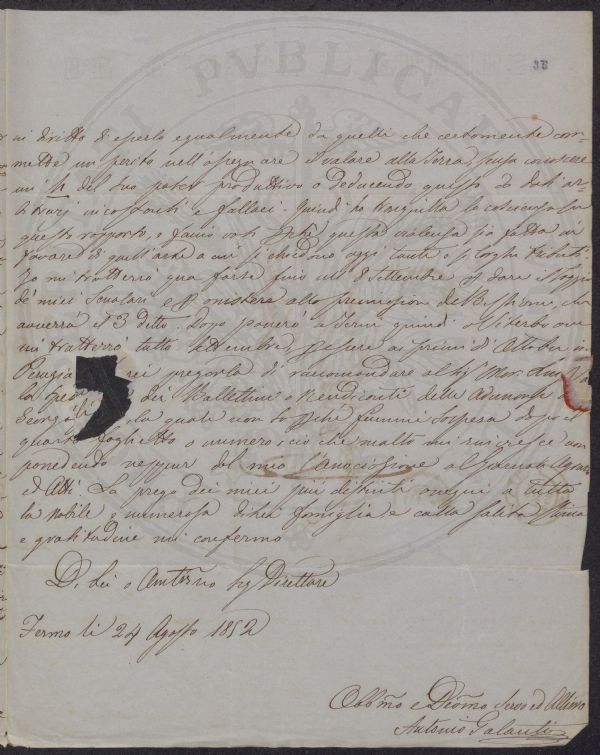 36
I PVBLICAE
di diritto di esperlo egualmente da quelli che certamente com-
mette un perito nell'apprezzare il valore alla Terra, senza conoscere
un h del suo poter produttivo o deducendo questo da dati ar-
bitrarj incostanti e fallaci. Quindi ho tranquilla la coscienza su
questo rapporto, e faccio voti perché questa violenza sia fatta in
favore di quell'arte a cui si chiedono oggi tanti e larghi tributi.
Io mi tratterrò qua forse fino agli 8 Settembre per dare i Saggi
de' miei Scolari e per assistere alla premiazione del Bestiame, che
avverrà il 3 detto. Dopo passerò a Terni quindi a Viterbo ove
mi tratterrò tutto Settembre per essere ai primi di Ottobre in
Perugia. pregarla di raccomandare al Sig Mar.
la dei Bullettini o Rendiconti della Adunanza dei
Georgofili la quale non so perché fummi sospesa dopo il
quarto foglietto o numero: ciò che molto mi rincresce non
possedendo neppur del mio l'associazione al Giornale Agrario
ed Atti. La prego dei miei più distinti ossequi a tutta
la nobile e numerosa di Lei famiglia e colla solita stima
e gratitudine mi confermo
Di Lei o Sig Direttore
Fermo li 24 Agosto 1852
Obbmo e Devmo Servo ed Allievo
Antonio Galanti